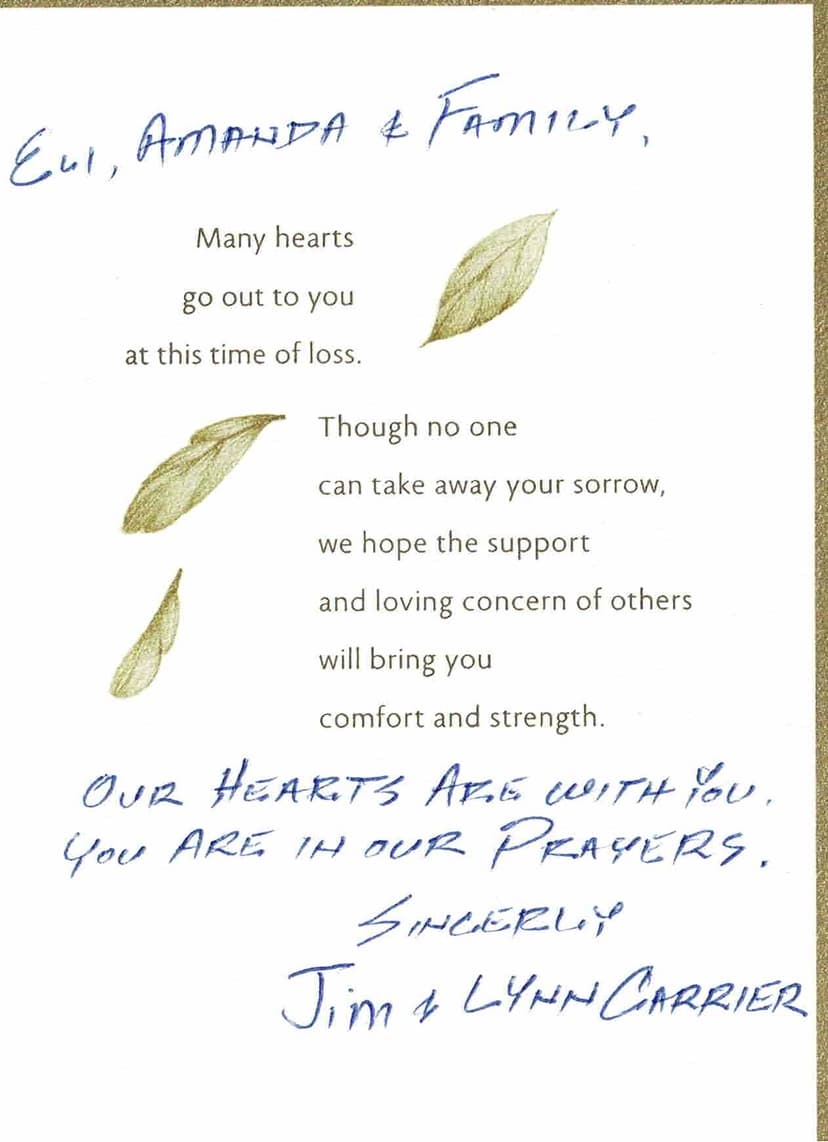 Eli, AMANDA & FAMILY,
Many hearts
go out to you
at this time of loss.
Though no one
can take away your sorrow,
we hope the support
and loving concern of others
will bring you
comfort and strength.
OUR HEARTS ARE WITH YOU.
YOU ARE IN OUR PRAYERS.
SINCERLY
Jim & LYNN CARRIER